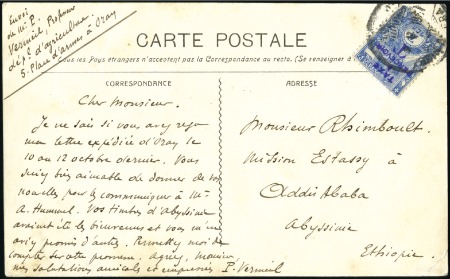 Envoi
de Mr. P.
Vermeil, Professeur
dépt d'agriculture
5. Place d'armes à Oray
CARTE POSTALE
Tous les Pays étrangers n'acceptent pas la Correspondance au recto. (Se renseigner à
CORRESPONDANCE
ADRESSE
Cher Monsieur.
Je ne sais si vous avez reçu
ma lettre expédiée d'Oray le
10 ou 12 octobre dernier. Vous
seriez bien aimable de donner de vos
nouvelles pour les communiquer à Mr
A. Hummel. Vos timbres d'Abyssinie
avaient été les bienvenus et vous m'en
aviez promis d'autres. Permettez moi de
compter sur votre promesse, agréez, Monsieur
mes salutations amicales et empressées P. Vermeil
Monsieur Rhimboult.
Mission Estassy à
Addis Ababa
Abyssinie
Ethiopie.